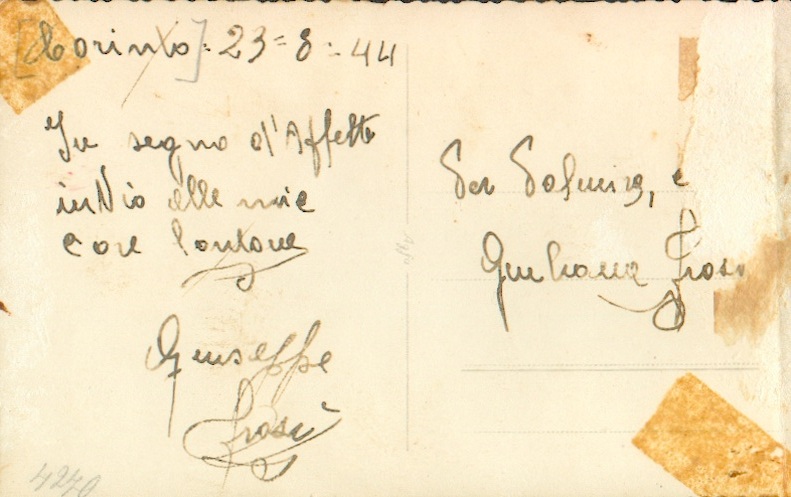 [Corinto]. 23=8=44
In segno d'Affetto
invio alle mie
care lontane
Giuseppe
Frosi
Per Palmira, e
Giuliana Frosi
4240